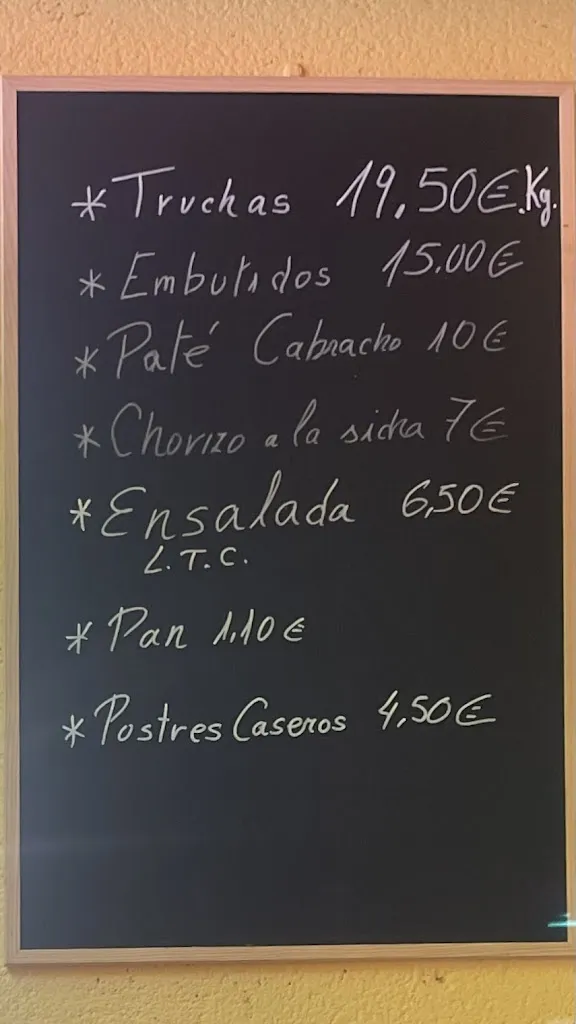 *Truchas 19,50€.Kg.
*Embutidos 15.00€
*Paté Cabracho 10€
*Chorizo a la sidra 7€
*Ensalada 6,50€
L.T.C.
*Pan 1,10€
*Postres Caseros 4,50€